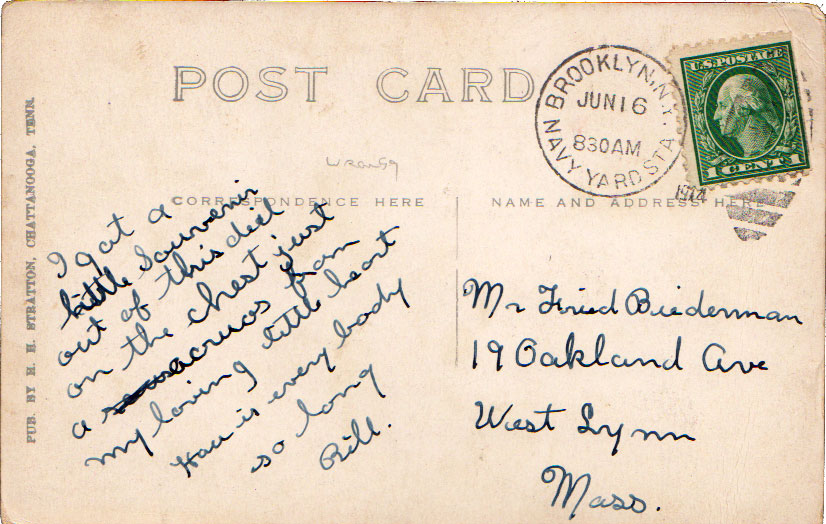 POST CARD
BROOKLYN, N.Y.
JUN 16
830AM
NAVY YARD STA.
1914
U.S. POSTAGE
1 CENT 1
CORRESPONDENCE HERE
NAME AND ADDRESS HERE
PUB. BY H. H. STRATTON, CHATTANOOGA, TENN.
I got a
little Souvenir
out of this deal
on the chest just
a acruos from
my loving little heart
How is every body
so long
Bill.
Mr Fried Biederman
19 Oakland Ave
West Lynn
Mass.